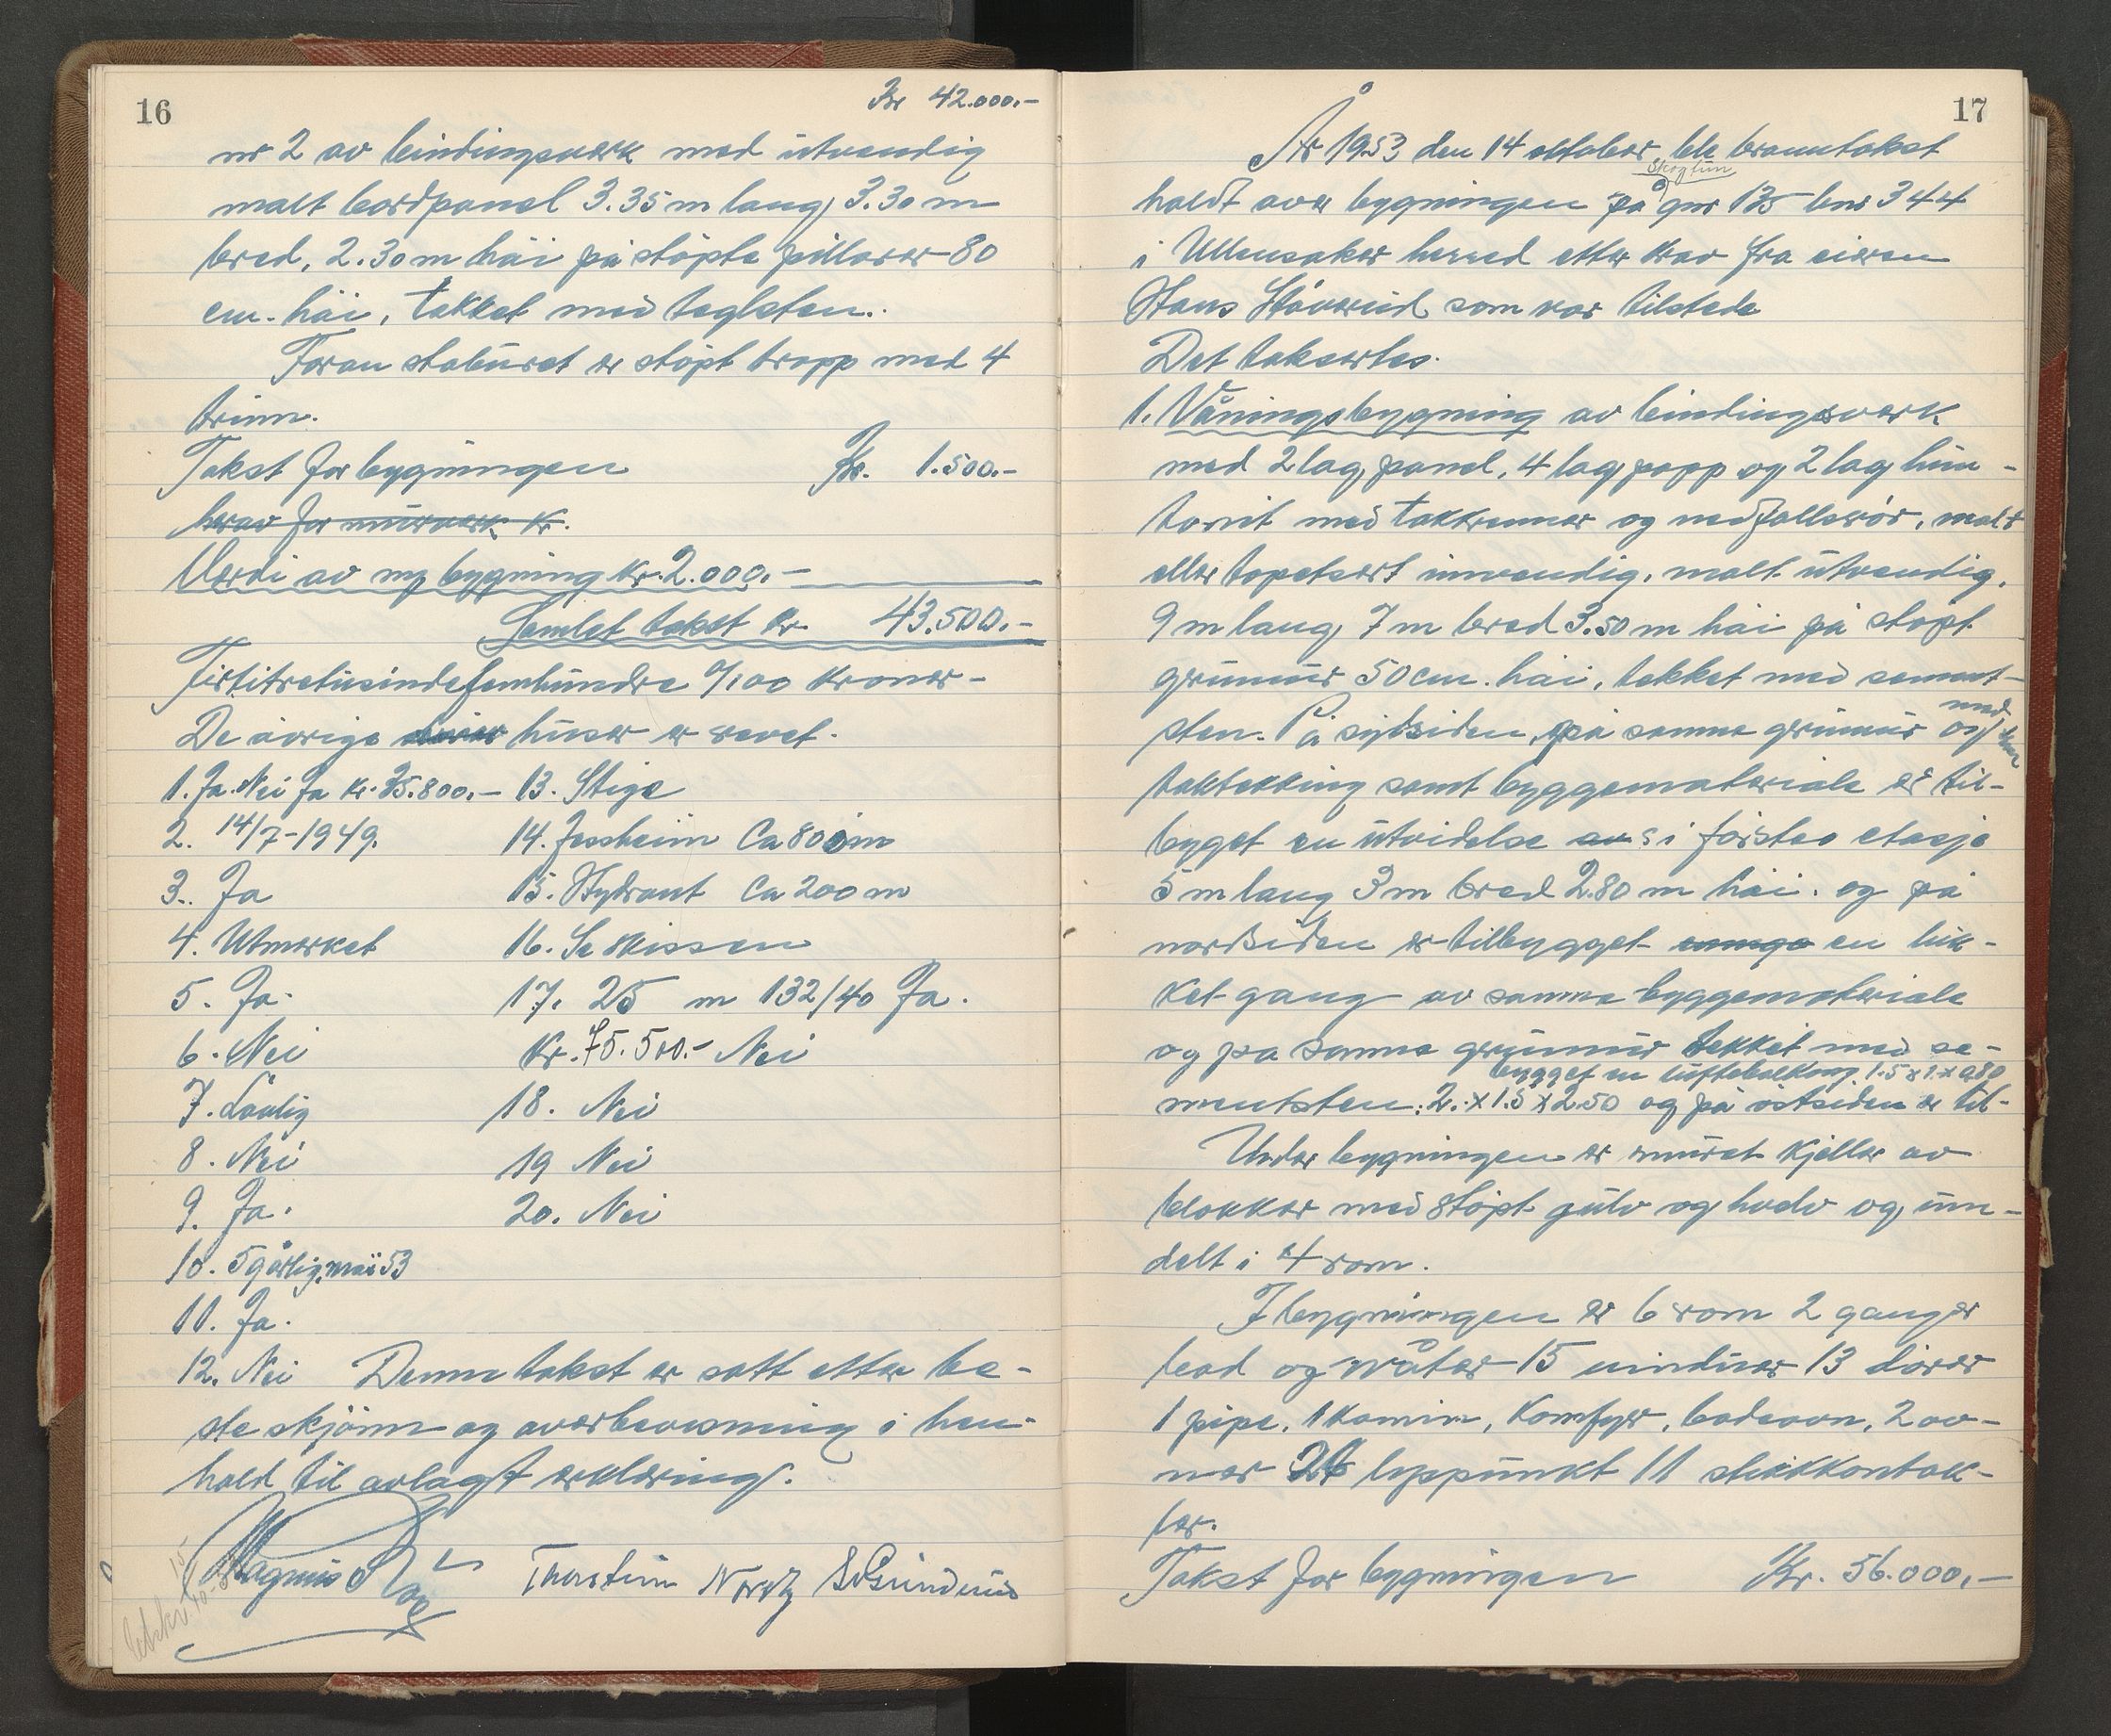 16
Kr 42.000.-
nr 2 av bindingsverk med utvendig
malt bordpanel 3.35 m lang, 3.30 m
bred, 2.30 m høi på støpte pillarer 80
cm. høi, tekket med teglsten.
Foran staburet er støpt trapp med 4
trinn.
Takst for bygningen Kr. 1.500.-
herav for murverk kr.
Verdi av ny bygning kr. 2.000.-
Samlet takst kr. 43.500.-
Førtitretusindefemhundre 0/100 kroner-
De øvrige huser er revet.
1. Ja. Nei Ja kr. 35.800.- 13. Stige
2. 14/7-1949. 14. Jessheim Ca 800 m
3. Ja 15. Hydrant Ca 200 m
4. Utmerket 16. Se skissen
5. Ja. 17. 25 m 132/40 Ja.
6. Nei Kr. 75.500.- Nei
7. Lovlig 18. Nei
8. Nei 19 Nei
9. Ja. 20. Nei
10. 5 gårlig, mai 53
11. Ja.
12. Nei Denne takst er satt etter be-
ste skjønn og overbevisning i hen-
hold til avlagt erklæring.
Magnus Thorstein S. Gunderud
17
År 1953 den 14 oktober ble branntakst
Skogtun
holdt over bygningen på gnr 135 bnr 344
i Ullensaker herred etter krav fra eieren
Hans Støverud som var tilstede
Det takseertes.
1. Våningsbygning av bindingsverk
med 2 lag panel, 4 lag papp og 2 lag hun-
tonit med takrenner og nedfallsrør, malt
eller tapetsert innvendig, malt utvendig,
9 m lang, 7 m bred 3.50 m høi på støpt
grunmur 50 cm. høi, tekket med sement-
sten. På sydsiden, på samme grunmur og med
taktekking samt byggemateriale er til-
byget en utvidelse av i første etasje
5 m lang 3 m bred 2.80 m høi. og på
nordsiden er tilbygget en luk-
ket gang av samme byggemateriale
og på samme grunmur tekket med se-
bygget en luftebalkong 1.5 x 1. x 0.80
mentsten. 2. x 1.5 x 2.50 og på østsiden er til-
Under bygningen er muret kjeller av
blokker med støpt gulv og hvelv og inn-
delt i 4 rom.
I bygningen er 6 rom 2 ganger
bad og water 15 vinduer 13 dører
1 pipe, 1 kamin, komfyr, badeovn, 2 ov-
ner 26 lyspunkt 11 stikkontak-
ter.
Takst for bygningen Kr. 56.000,-